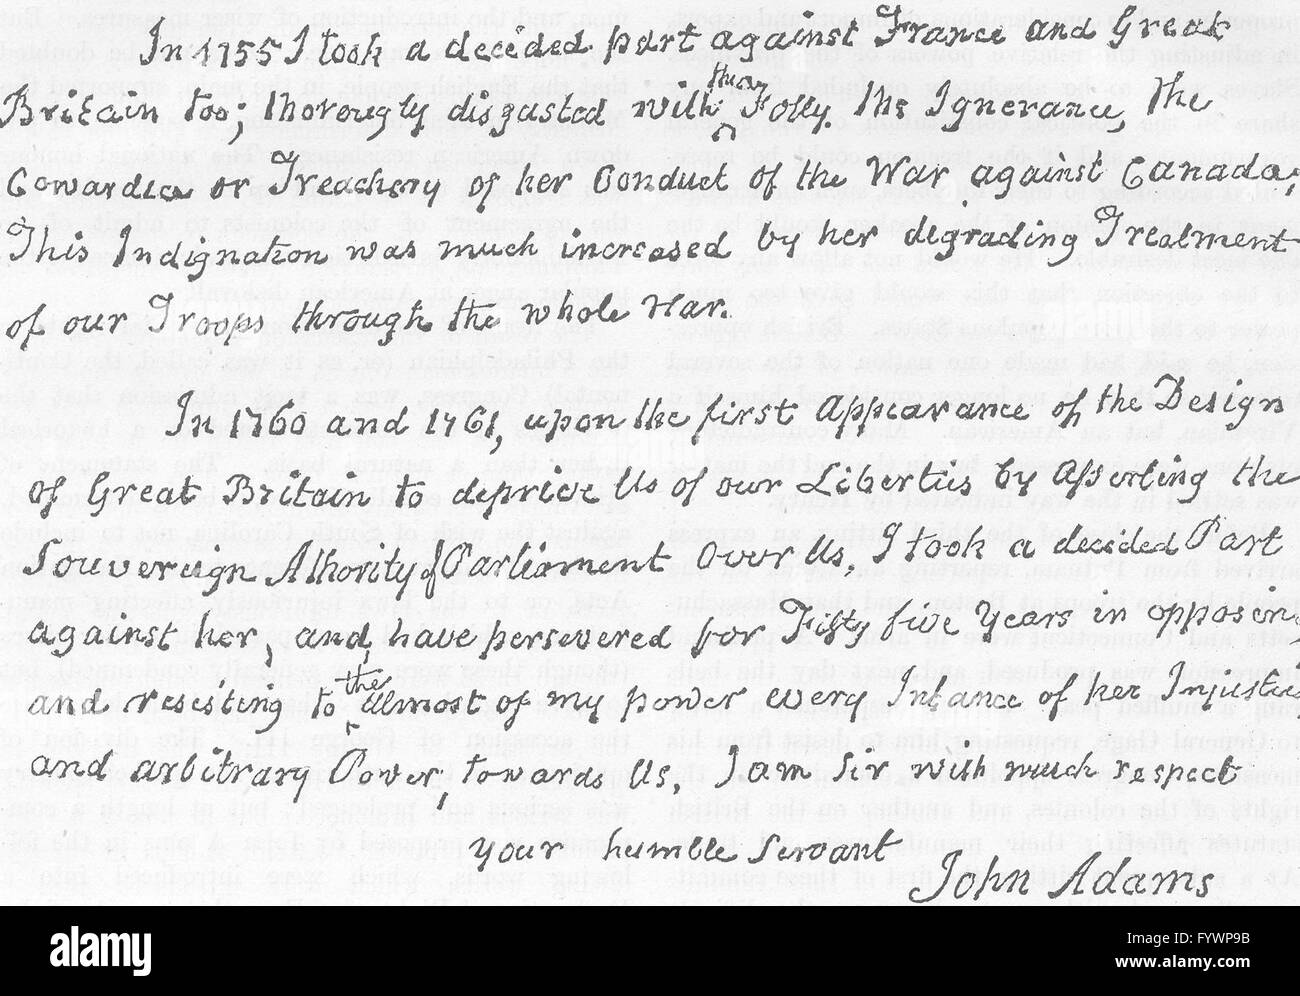 In 1755 I took a decided part against France and Great
Britain too; thorougly disgusted with this Folly the Ignerance, the
Cowardice or Treachery of her Conduct of the War against Canada.
This Indignation was much increased by her degrading Treatment
of our Troops through the whole War.
In 1760 and 1761, upon the first appearance of the Design
of Great Britain to deprive us of our Liberties by asserting the
Souvereign Athority of Parliament over us, I took a decided Part
against her, and have persevered for Fifty five Years in opposing
and resisting to the utmost of my power every Instance of her Injustice
and arbitrary Power towards Us. I am Sir with much respect
your humble Servant
John Adams
alamy stock photo
FYWP9B
www.alamy.com